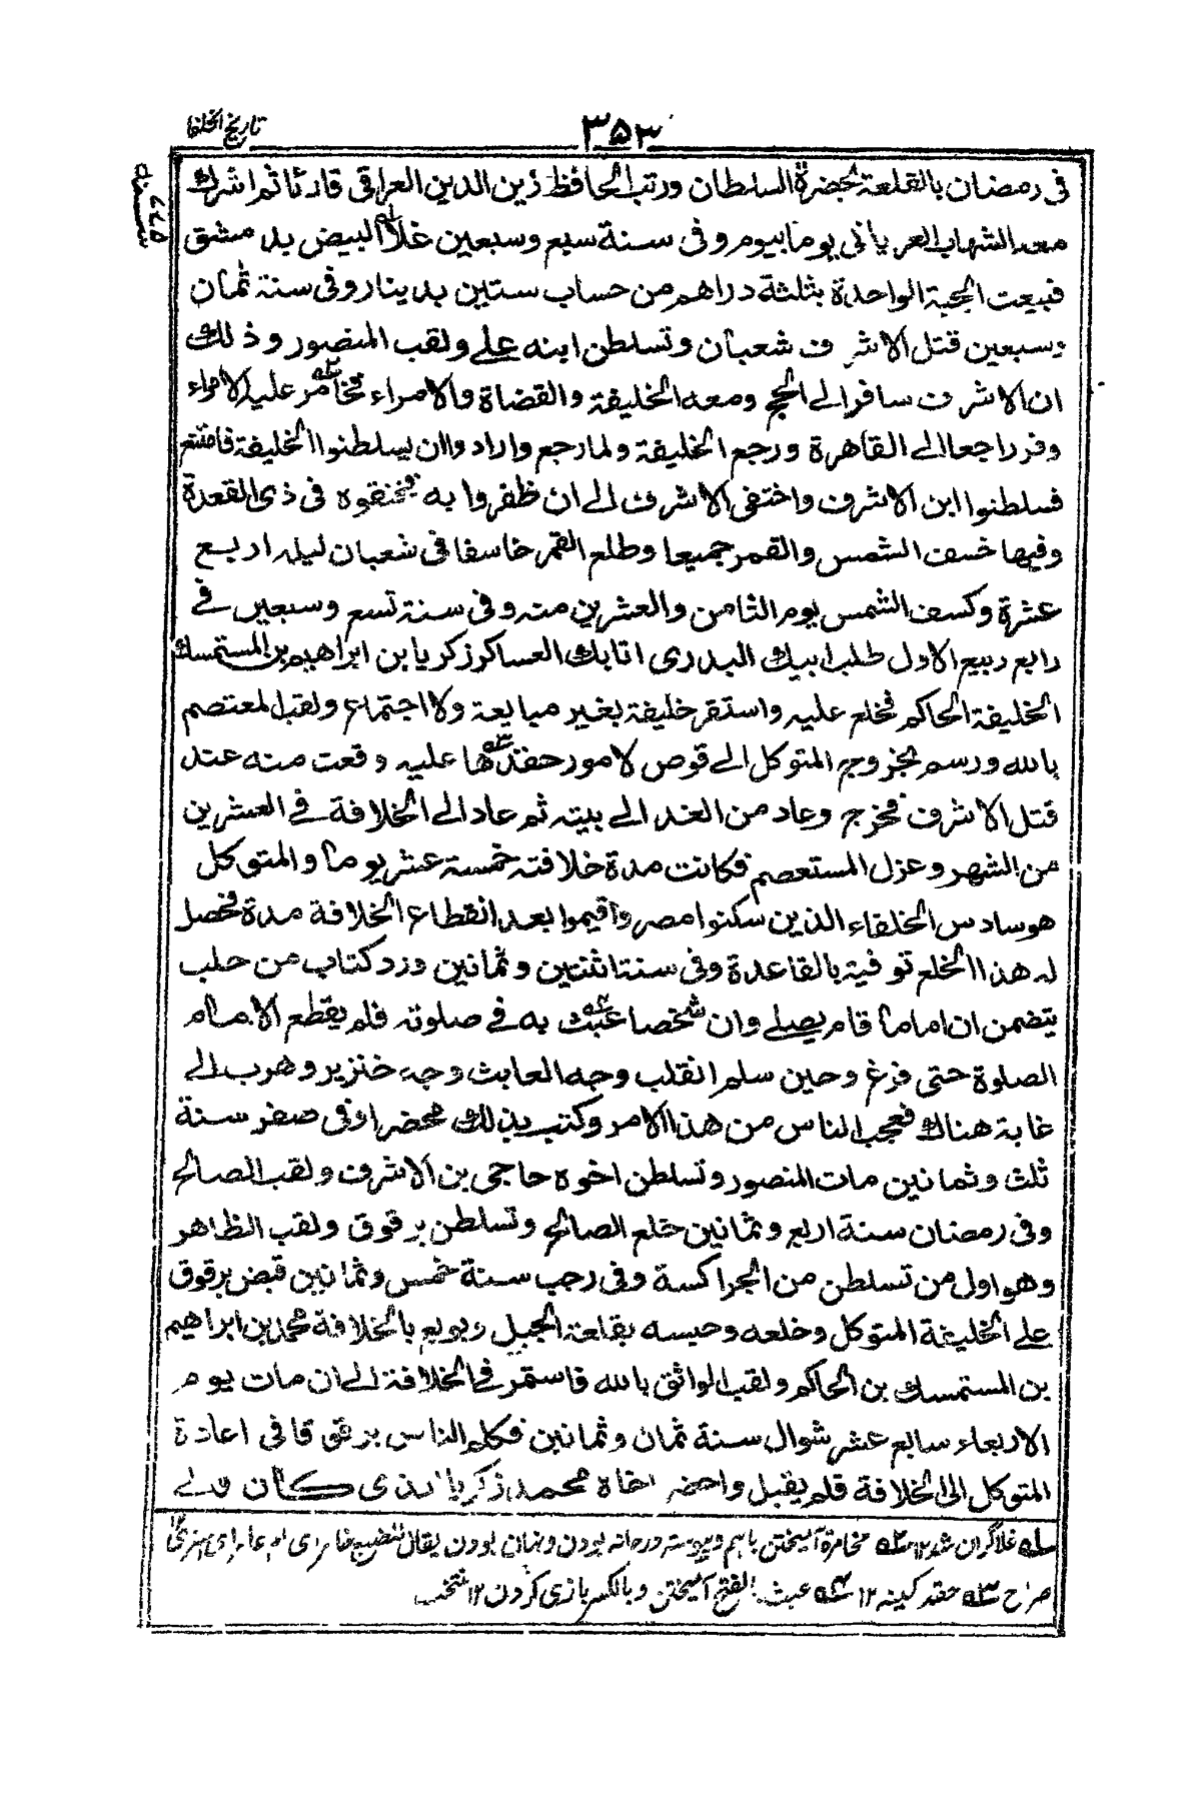 تاريخ الخلفا
٣٥٣
في رمضان بالقلعة بحضرة السلطان ورتب الحافظ زين الدين العراقي قارئا ثم اشرك
معه الشهاب العرياني يوما بيوم وفي سنة سبع وسبعين غلا البيض بدمشق
فبيعت الحبة الواحدة بثلثة دراهم من حساب ستين بدينار وفي سنة ثمان
وسبعين قتل الاشرف شعبان وتسلطن ابنه علي ولقب المنصور وذلك
ان الاشرف سافر الى الحج ومعه الخليفة والقضاة والامراء فخامر عليه الامراء
وفر راجعا الى القاهرة ورجع الخليفة ولما رجع وارادوا ان يسلطنوا الخليفة فامتنع
فسلطنوا ابن الاشرف واختفى الاشرف الى ان ظفروا به فخنقوه في ذي القعدة
وفيها خسف الشمس والقمر جميعا وطلع القمر خاسفا في شعبان ليلة اربع
عشرة وكسف الشمس يوم الثامن والعشرين منه وفي سنة تسع وسبعين في
رابع ربيع الاول طلب ايبك البدري اتابك العساكر زكريا بن ابراهيم بن المستمسك
الخليفة الحاكم فخلع عليه واستقر خليفة بغير مبايعة ولا اجتماع ولقب المعتصم
بالله ورسم بخروج المتوكل الى قوص لامور حقدها عليه وقعت منه عند
قتل الاشرف فخرج وعاد من الغد الى بيته ثم عاد الى الخلافة في العشرين
من الشهر وعزل المستعصم فكانت مدة خلافته خمسة عشر يوما والمتوكل
هو سادس الخلفاء الذين سكنوا مصر واقيموا بعد انقطاع الخلافة مدة فحصل
له هذا الخلع توفية بالقاعدة وفي سنة اثنتين وثمانين ورد كتاب من حلب
يتضمن ان اماما قام يصلي وان شخصا عبث به في صلوته فلم يقطع الامام
الصلوة حتى فرغ وحين سلم انقلب وجه العابث وجه خنزير وهرب الى
غابة هناك فعجب الناس من هذا الامر وكتب بذلك محضر وفي صفر سنة
ثلث وثمانين مات المنصور وتسلطن اخوه حاجي بن الاشرف ولقب الصالح
وفي رمضان سنة اربع وثمانين خلع الصالح وتسلطن برقوق ولقب الظاهر
وهو اول من تسلطن من الجراكسة وفي رجب سنة خمس وثمانين قبض برقوق
على الخليفة المتوكل وخلعه وحبسه بقلعة الجبل وبويع بالخلافة محمد بن ابراهيم
بن المستمسك بن الحاكم ولقب الواثق بالله فاستمر في الخلافة الى ان مات يوم
الاربعاء سابع عشر شوال سنة ثمان وثمانين فكلم الناس برقوقا في اعادة
المتوكل الى الخلافة فلم يقبل واحضر اخاه محمد زكريا الذي كان ولي
له غلا گران شد ١٢ له مخامرة آميختن باهم و پيوسته در خانه بودن و نهان بودن يقال للضبع خامري ام عامر اي استتري
صراح له حقد كينه ١٢ له عبث بالفتح آميختن و بالكسر بازي كردن ١٢ منتخب